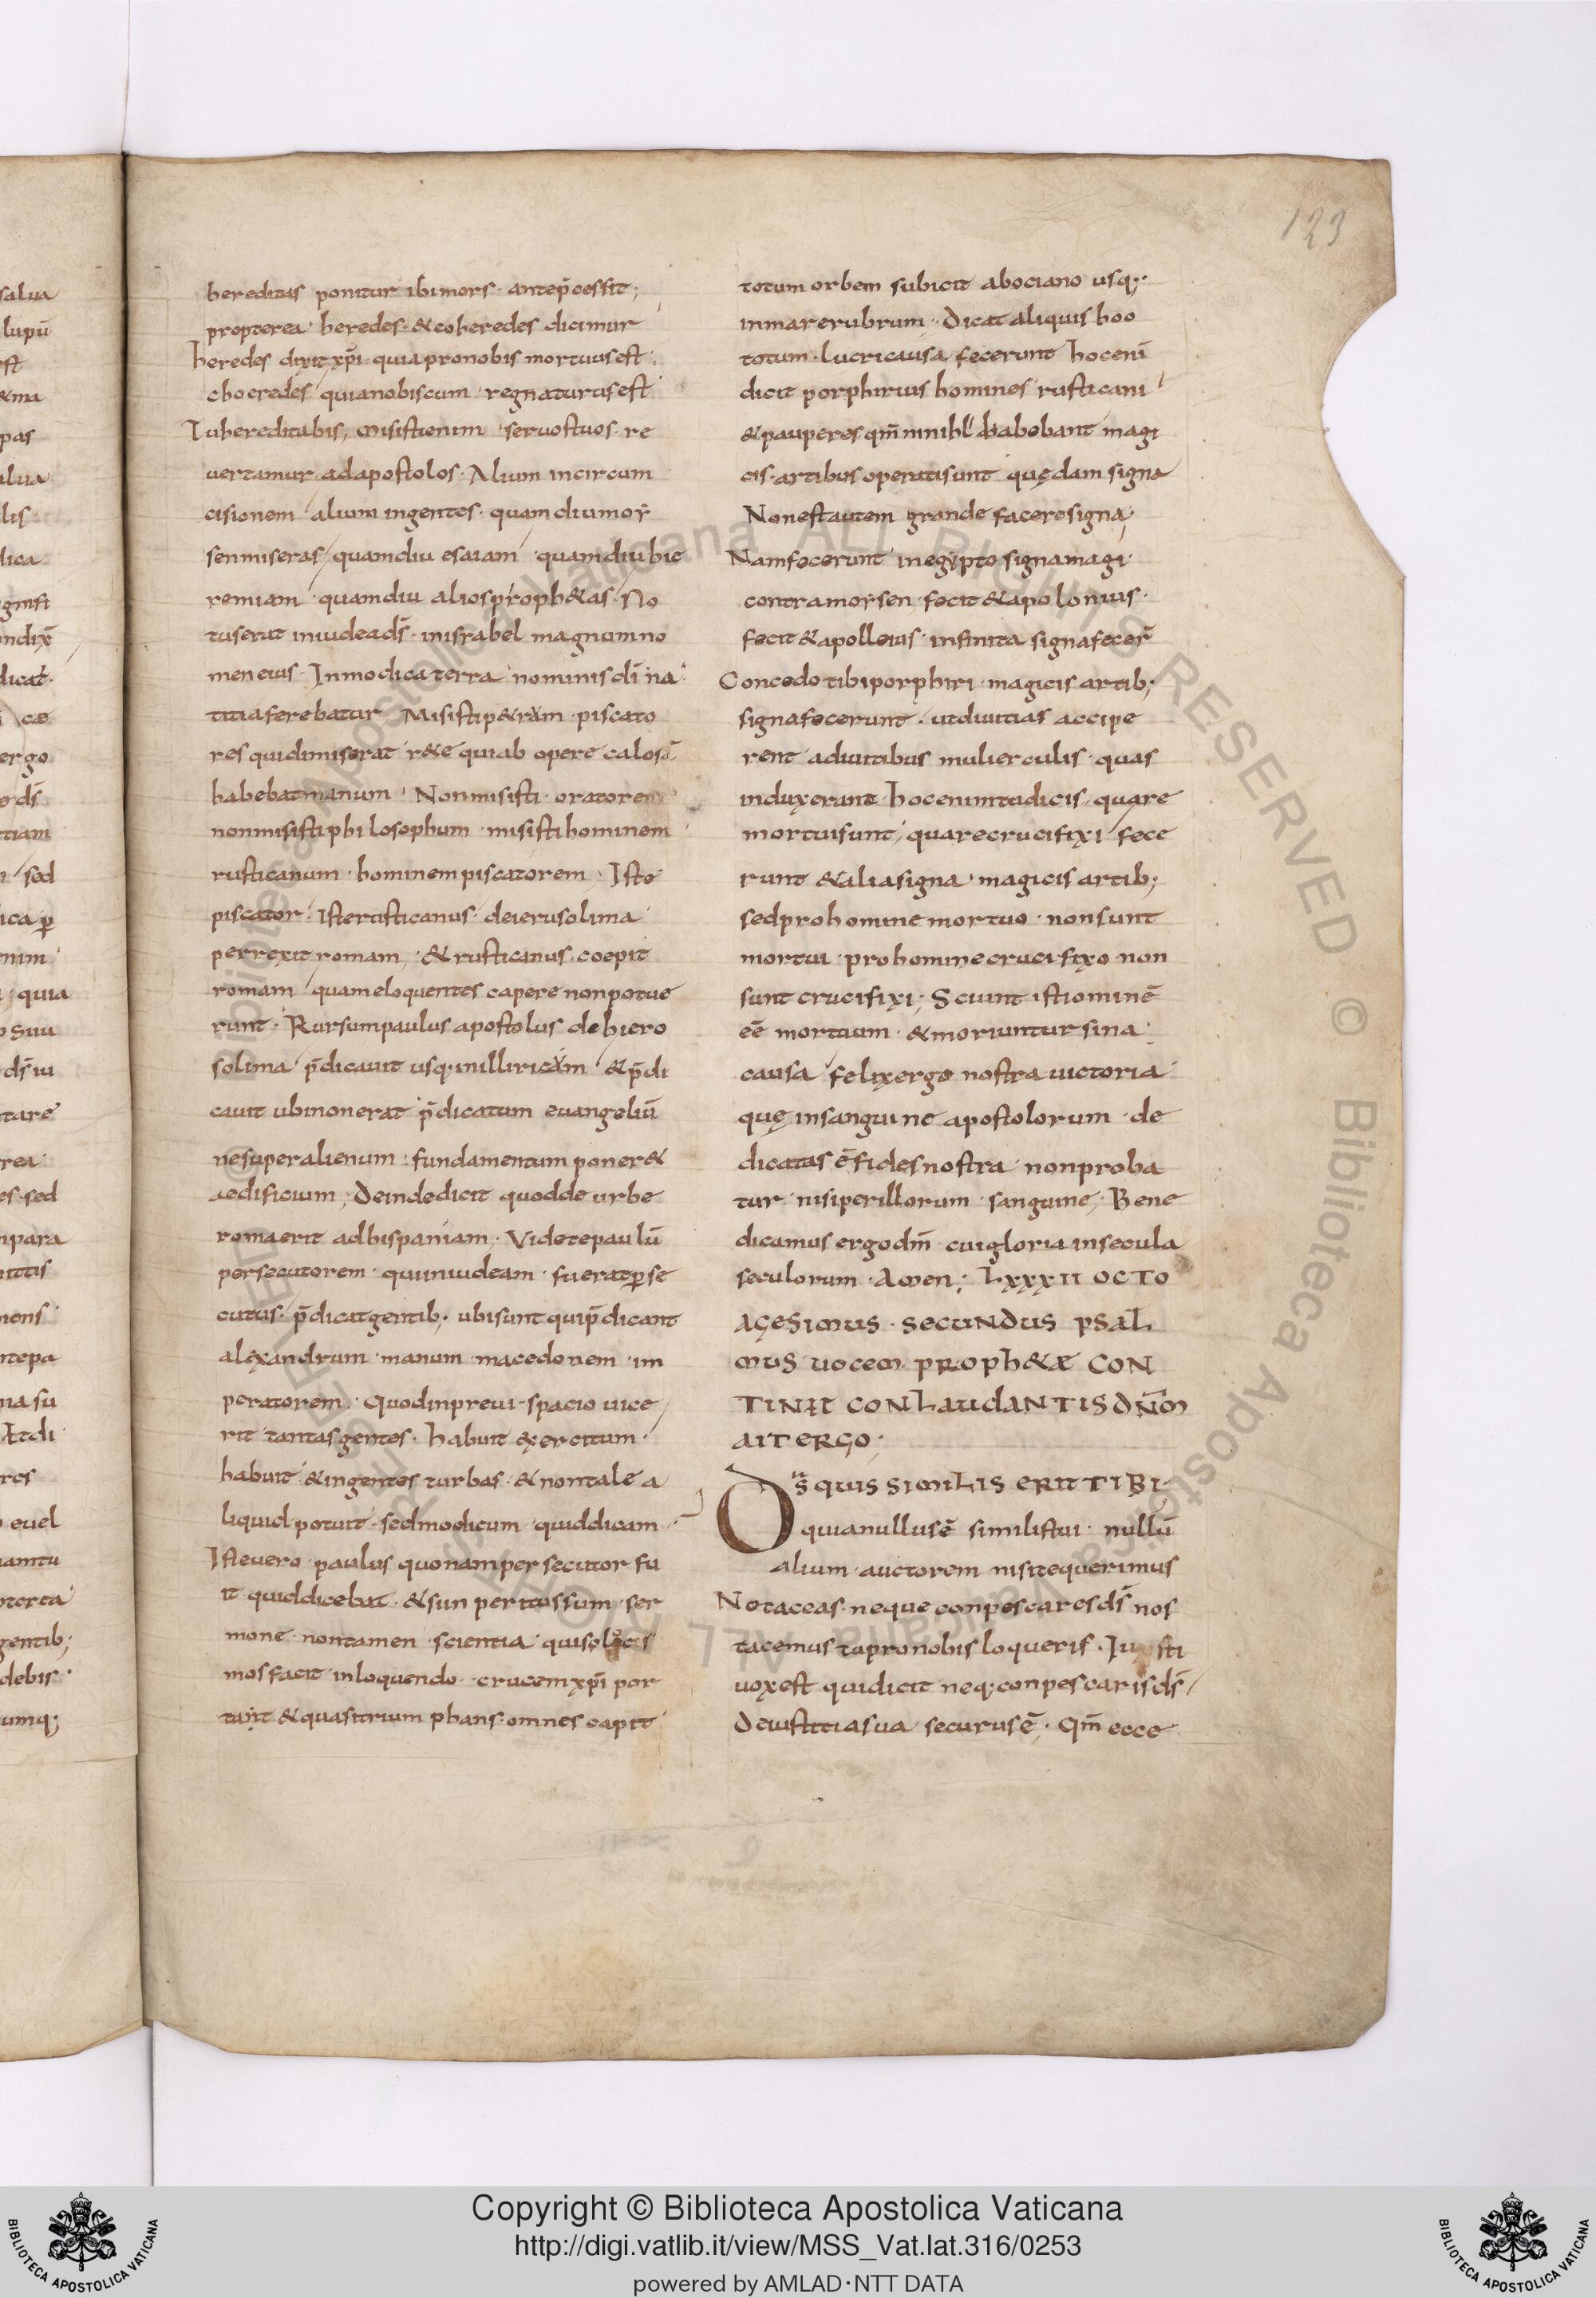 123
hereditas ponitur ibi mors · antep̄cessit;
propterea heredes · & coheredes dicimur
heredes dixit xp̄i · quia pro nobis mortuus est ·
choeredes quia nobiscum regnaturus est
Tu hereditabis, misisti enim seruos tuos · re
uertamur ad apostolos · Alium in circum
cisionem alium in gentes · quamdiu moy
sen miseras quamdiu esaiam quamdiu hie
remiam · quamdiu alios proph&as · No
tus erat in iudea ds̄ · in israhel magnum no
men eius · In modica terra nominis dī na
titia ferebatur Misisti p&rum · piscato
res qui dimiserat r&e qui ab opere calosā
habebat manum · Non misisti · oratorem
non misisti philosophum · misisti hominem
rusticanum · hominem piscatorem Iste
piscator · Iste rusticanus · de ierusolima
perrexit romam, & rusticanus · coepit
romam quam eloquentes capere non potue
runt · Rursum paulus apostolus de hiero
solima p̄dicauit usq· in illiricum & p̄di
cauit ubi non erat p̄dicatum euangeliū
ne super alienum · fundamentum poner&
aedificium; Deinde dicit quod de urbe
roma erit ad hispaniam · Videte paulū
persecutorem · qui in iudeam · fuerat p̱se
cutus · p̄dicat gentib; ubi sunt qui p̄dicant
alexandrum manum macedonem · im
peratorem · Quod in preui · spacio uice
rit tantas gentes · habuit exercitum ·
habuit & ingentes turbas · & non tale a
liquid potuit · sed modicum quid dicam ·
Iste uero paulus quonam persecutor fu
it quid dicebat · & si inperitus sum · ser
mone non tamen scientia qui
mos facit in loquendo · crucem xp̄i por
tant & quasi trium phans · omnes capit
totum orbem subicit ab ociano usq;·
in mare rubrum · Dicat aliquis hoo
totum · lucri causa fecerunt hoc enī
dicit porphirius homines rusticani
& pauperes qm̄ nihil habebant magi
cis · artibus operati sunt quędam signa
Non est autem grande facere signa;
Nam fecerunt in egypto signa magi ·
contra moysen · fecit & apolonius ·
fecit & apolleius · infinita signa fecer̄
Concedo tibi porphiri · magicis artib;
signa fecerunt · ut diuitias accipe
rent a diuitibus mulierculis · quas
induxerant · hoc enim tu dicis · quare
mortui sunt, quare crucifixi fece
runt & alia signa · magicis artib;
sed pro homine mortuo · non sunt
mortui pro homine crucifixo · non
sunt crucifixi; Sciunt isti ominē
eē mortuum · & moriuntur sina
causa felix ergo nostra uictoria
quę in sanguine apostolorum · de
dicatas ē fides nostra non proba
tur · nisi per illorum sanguine; Bene
dicamus ergo dm̄ cui gloria in secula
seculorum · Amen; LXXXII OCTO
AGESIMUS · SECUNDUS PSAL
MUS UOCEM PROPH&Æ CON
TINET CONLAUDANTIS DN̄M
AIT ERGO ·
Ds̄ QUIS SIMILIS ERIT TIBI ·
quia nullus ē similis tui · nullū
alium auctorem nisi te querimus
Ne taceas · neque conpescares ds̄ nos
tacemus tu pro nobis loqueris · Iu sti
uox est qui dicit neq· conpescaris ds̄
De iustitia sua securus ē · Qm̄ ecce
Copyright © Biblioteca Apostolica Vaticana
http://digi.vatlib.it/view/MSS_Vat.lat.316/0253
powered by AMLAD·NTT DATA
BIBLIOTECA APOSTOLICA VATICANA
BIBLIOTECA APOSTOLICA VATICANA